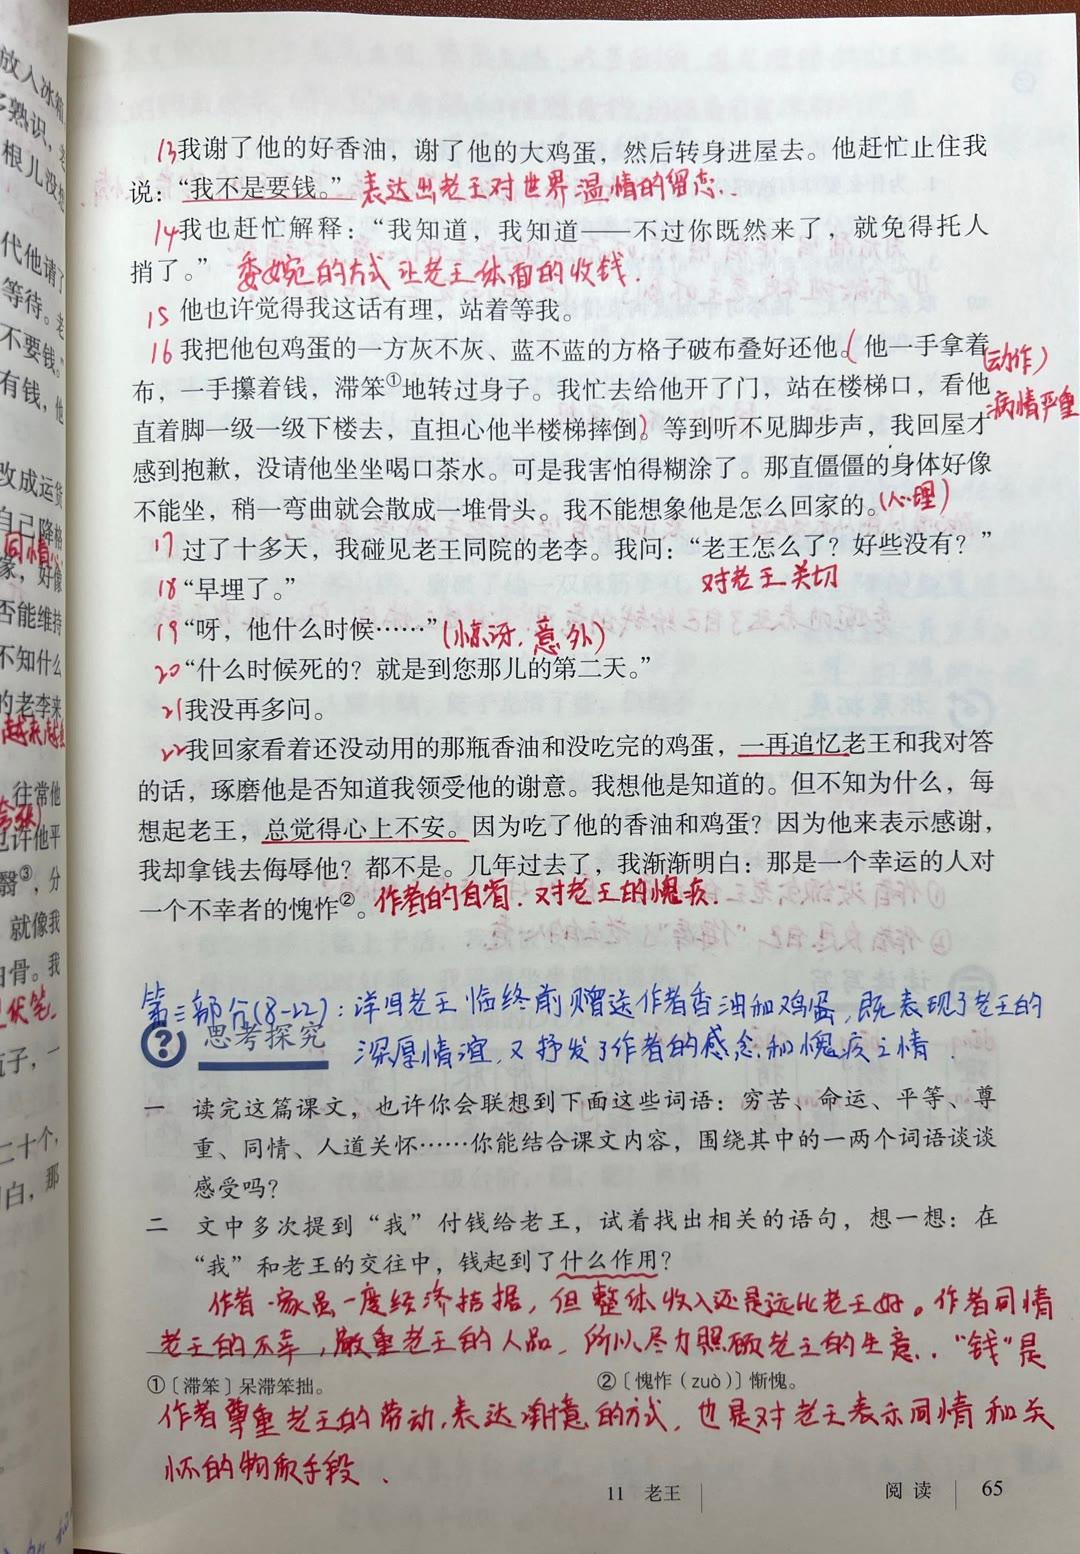 放入冰箱
多熟识，老
根儿没想
代他请了
等待。老
不要钱。”
有钱，他
改成运货
自己降格
同情心
家，好像
否能维持
不知什么
的老李来
越来越差
往常他
夸张)
过许他平
翳③，分
就像我
白骨。我
伏笔
瓶子，一
二十个，
明白，那
13我谢了他的好香油，谢了他的大鸡蛋，然后转身进屋去。他赶忙止住我
说：“我不是要钱。” 表达出老王对世界温情的留恋.
14我也赶忙解释：“我知道，我知道——不过你既然来了，就免得托人
捎了。” 委婉的方式让老王体面的收钱.
15 他也许觉得我这话有理，站着等我。
16 我把他包鸡蛋的一方灰不灰、蓝不蓝的方格子破布叠好还他。(他一手拿着 (动作)
布，一手攥着钱，滞笨①地转过身子。我忙去给他开了门，站在楼梯口，看他 病情严重
直着脚一级一级下楼去，直担心他半楼梯摔倒)。等到听不见脚步声，我回屋才
感到抱歉，没请他坐坐喝口茶水。可是我害怕得糊涂了。那直僵僵的身体好像
不能坐，稍一弯曲就会散成一堆骨头。我不能想象他是怎么回家的。(心理)
17 过了十多天，我碰见老王同院的老李。我问：“老王怎么了？好些没有？”
18 “早埋了。” 对老王关切
19 “呀，他什么时候……” (惊讶.意外)
20 “什么时候死的？就是到您那儿的第二天。”
21我没再多问。
22我回家看着还没动用的那瓶香油和没吃完的鸡蛋，一再追忆老王和我对答
的话，琢磨他是否知道我领受他的谢意。我想他是知道的。但不知为什么，每
想起老王，总觉得心上不安。因为吃了他的香油和鸡蛋？因为他来表示感谢，
我却拿钱去侮辱他？都不是。几年过去了，我渐渐明白：那是一个幸运的人对
一个不幸者的愧怍②。作者的自省.对老王的愧疚.
第三部分(8-22)：详写老王临终前赠送作者香油和鸡蛋，既表现了老王的
深厚情谊，又抒发了作者的感念和愧疚之情.
思考探究
一 读完这篇课文，也许你会联想到下面这些词语：穷苦、命运、平等、尊
重、同情、人道关怀……你能结合课文内容，围绕其中的一两个词语谈谈
感受吗？
二 文中多次提到“我”付钱给老王，试着找出相关的语句，想一想：在
“我”和老王的交往中，钱起到了什么作用？
作者一家虽一度经济拮据，但整体收入还是远比老王好。作者同情
老王的不幸，敬重老王的人品，所以尽力照顾老王的生意.“钱”是
①〔滞笨〕呆滞笨拙。 ②〔愧怍（zuò）〕惭愧。
作者尊重老王的劳动,表达谢意的方式，也是对老王表示同情和关
怀的物质手段.
11 老王 阅读 65